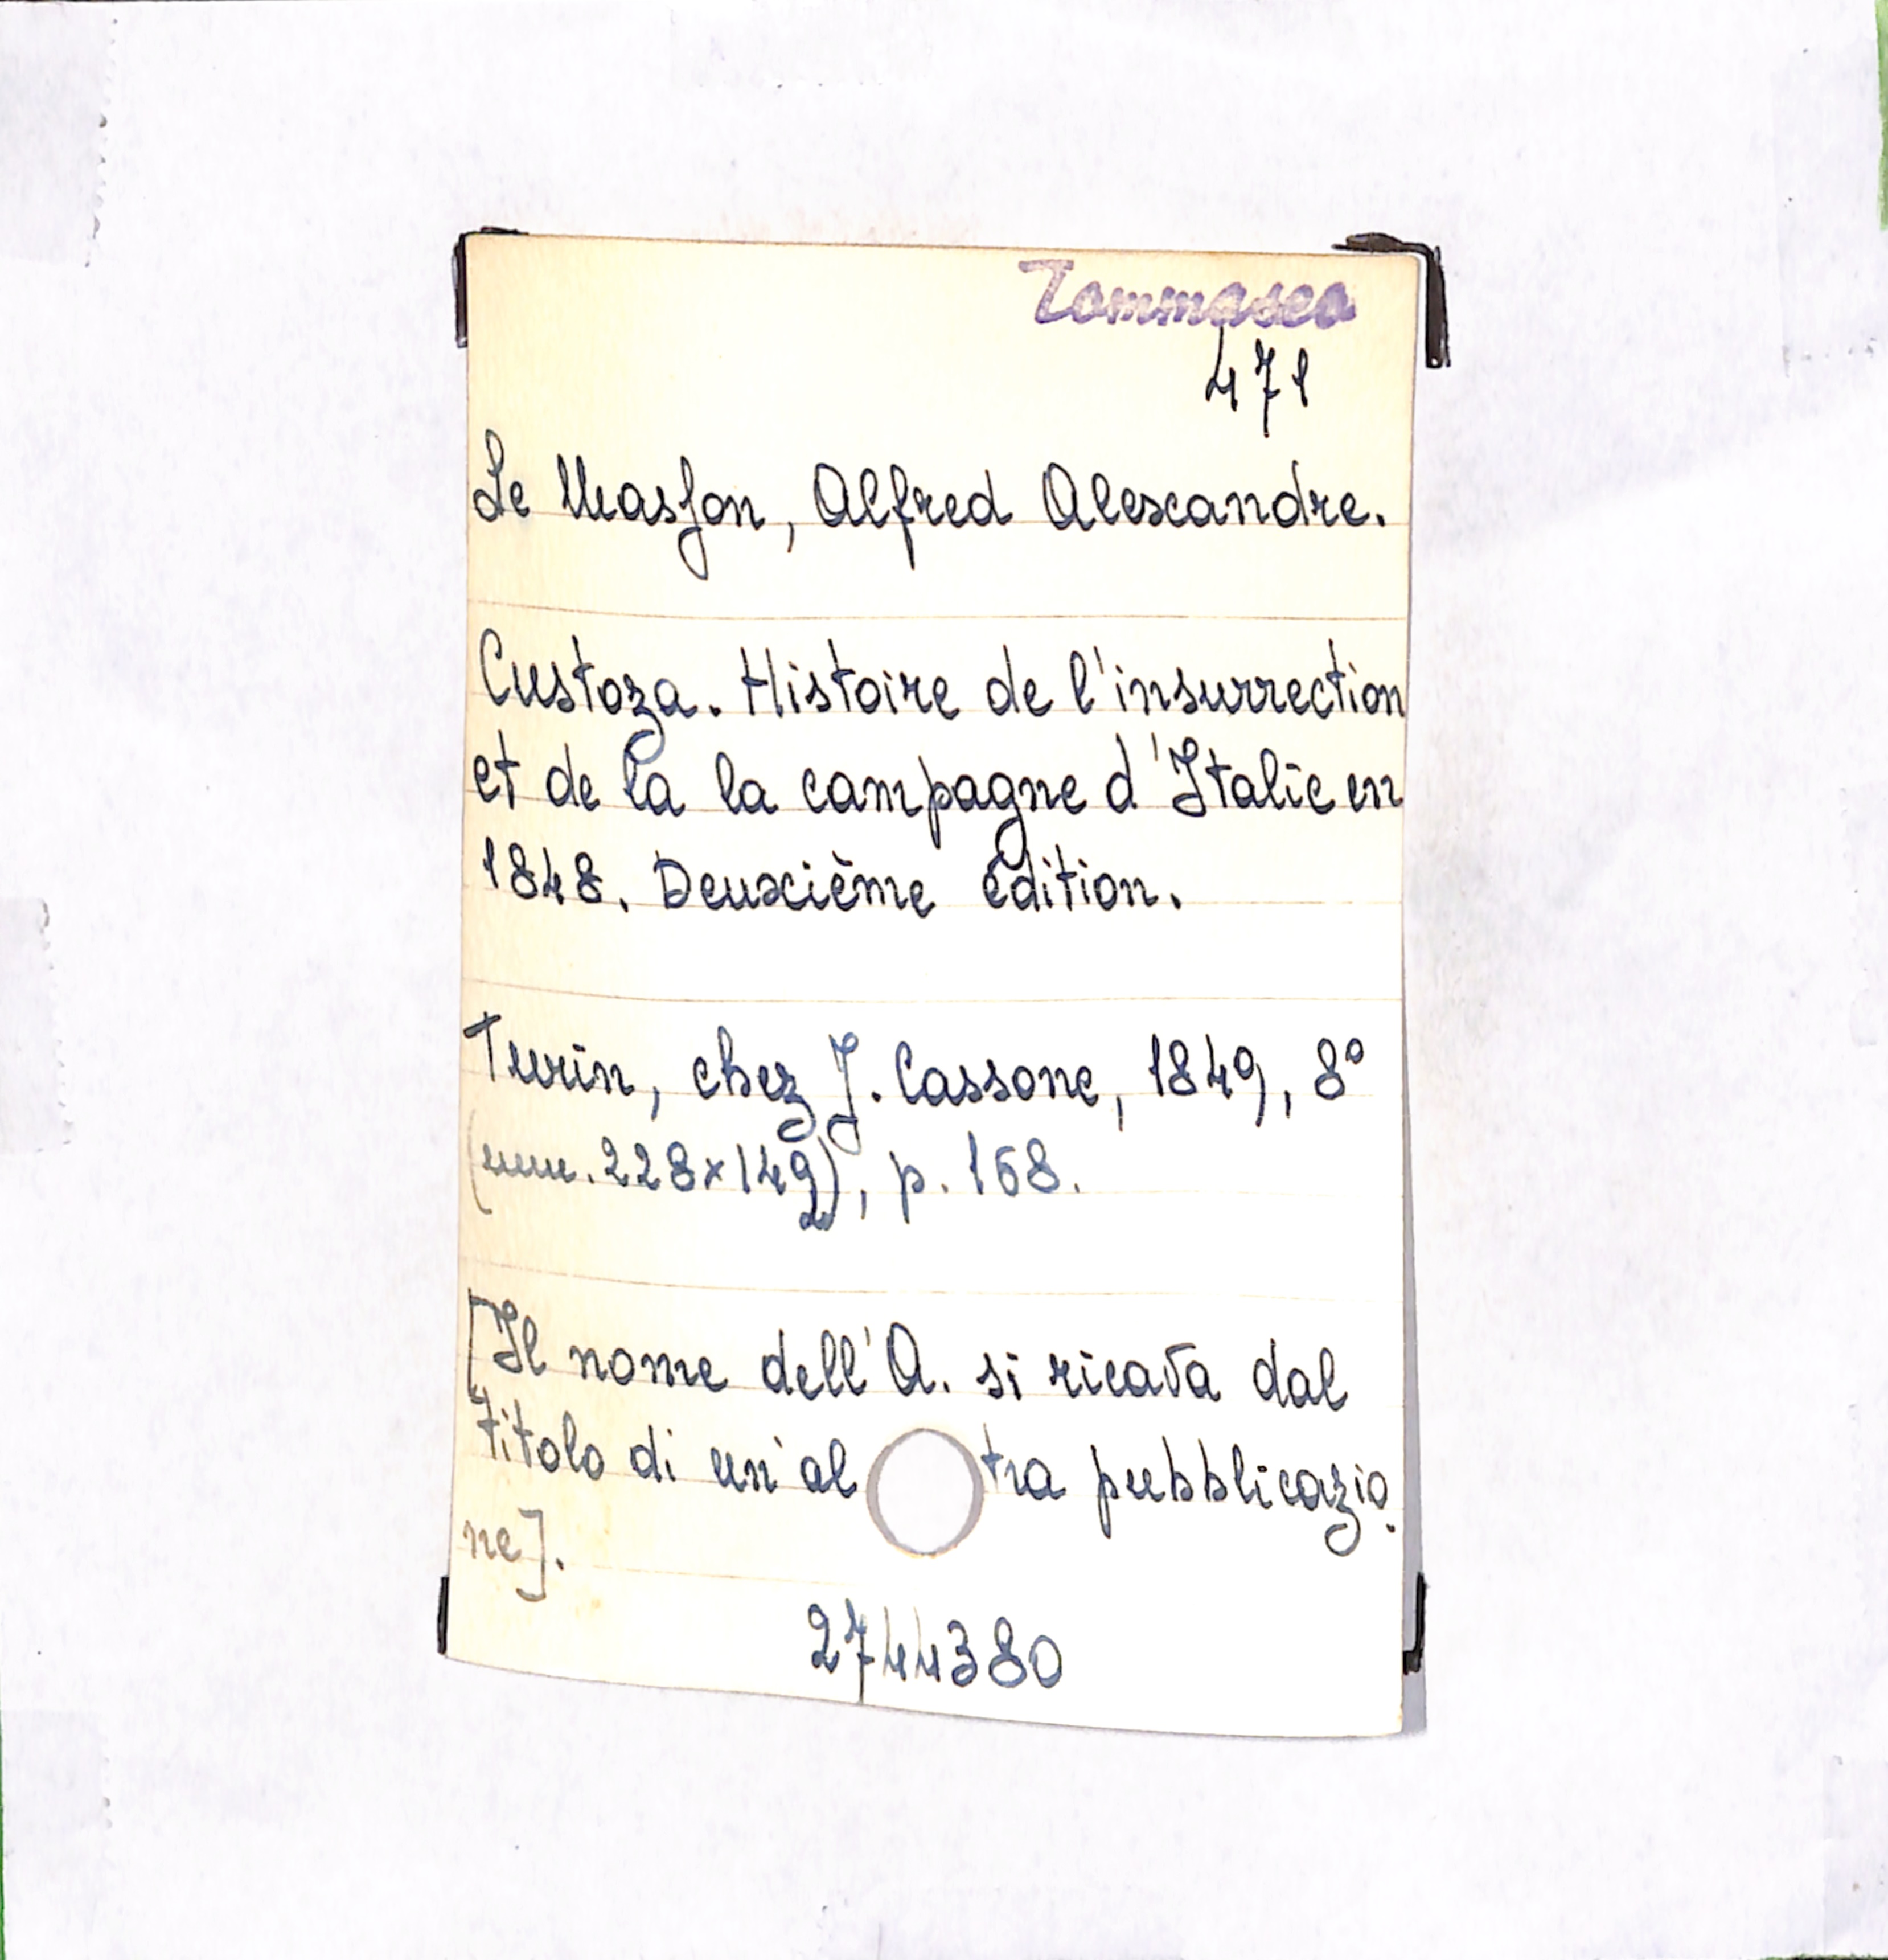 Tommaseo
471
Le Masson, Alfred Alexandre.
Custoza. Histoire de l'insurrection
et de la la campagne d'Italie en
1848. Deuxième édition.
Turin, chez J. Cassone, 1849, 8°
(mm. 228×149), p. 168.
[Il nome dell'A. si ricava dal
titolo di un'al tra pubblicazio
ne].
2744380